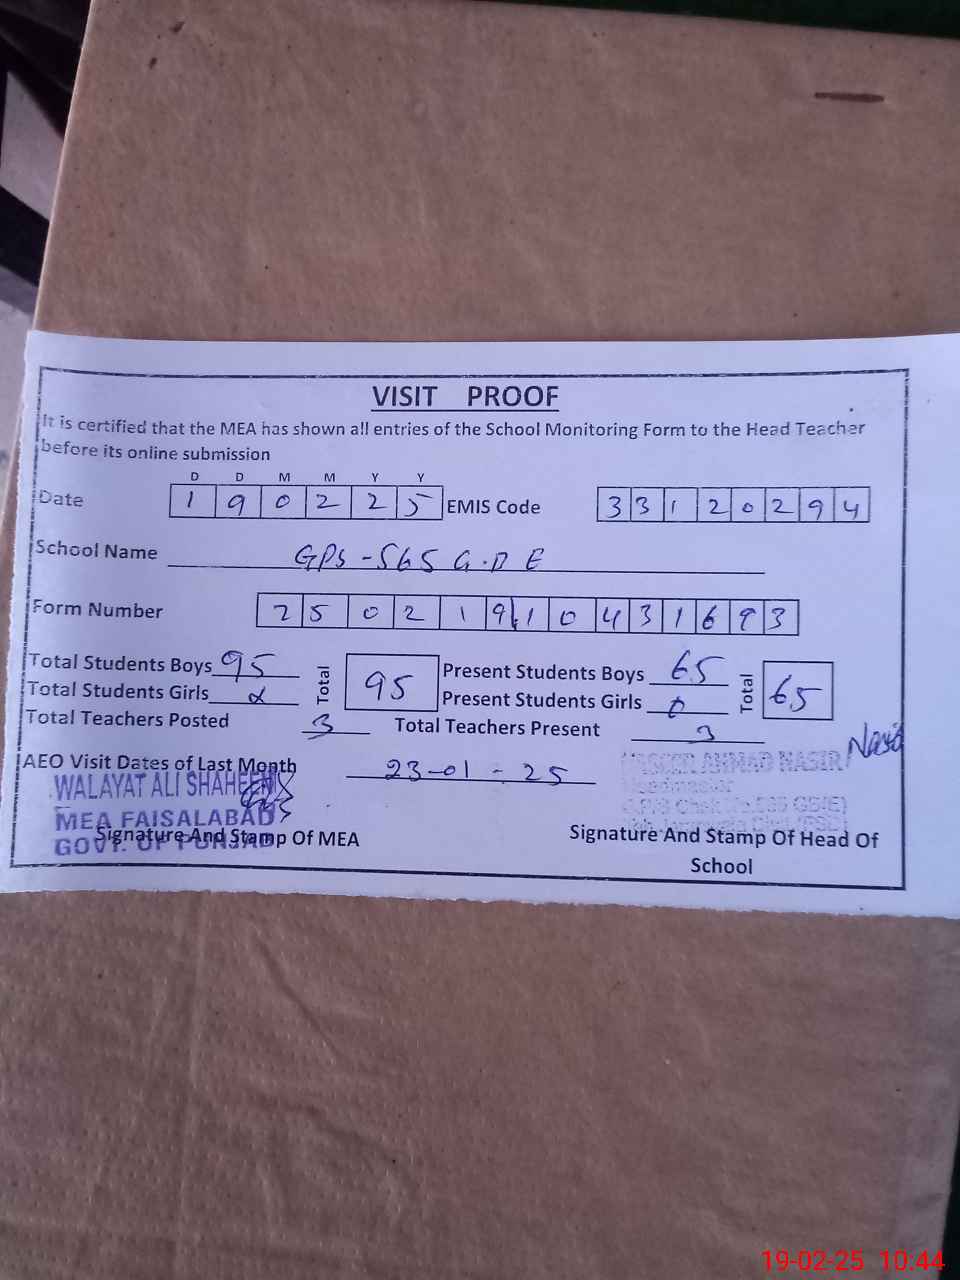 VISIT PROOF
It is certified that the MEA has shown all entries of the School Monitoring Form to the Head Teacher
before its online submission
D D M M Y Y
Date 1 9 0 2 2 5 EMIS Code 3 3 1 2 0 2 9 4
School Name GPS - 565 G.B E
Form Number 2 5 0 2 1 9 1 0 4 3 1 6 9 3
Total Students Boys 95 Total 95 Present Students Boys 65 Total 65
Total Students Girls 0 Present Students Girls 0
Total Teachers Posted 3 Total Teachers Present 3
Nasir
AEO Visit Dates of Last Month 23-01-25
WALAYAT ALI SHAHEEN
MEA FAISALABAD
GOVT. OF PUNJAB
Signature And Stamp Of MEA
AHMAD NASIR
Headmaster
Signature And Stamp Of Head Of
School
19-02-25 10:44